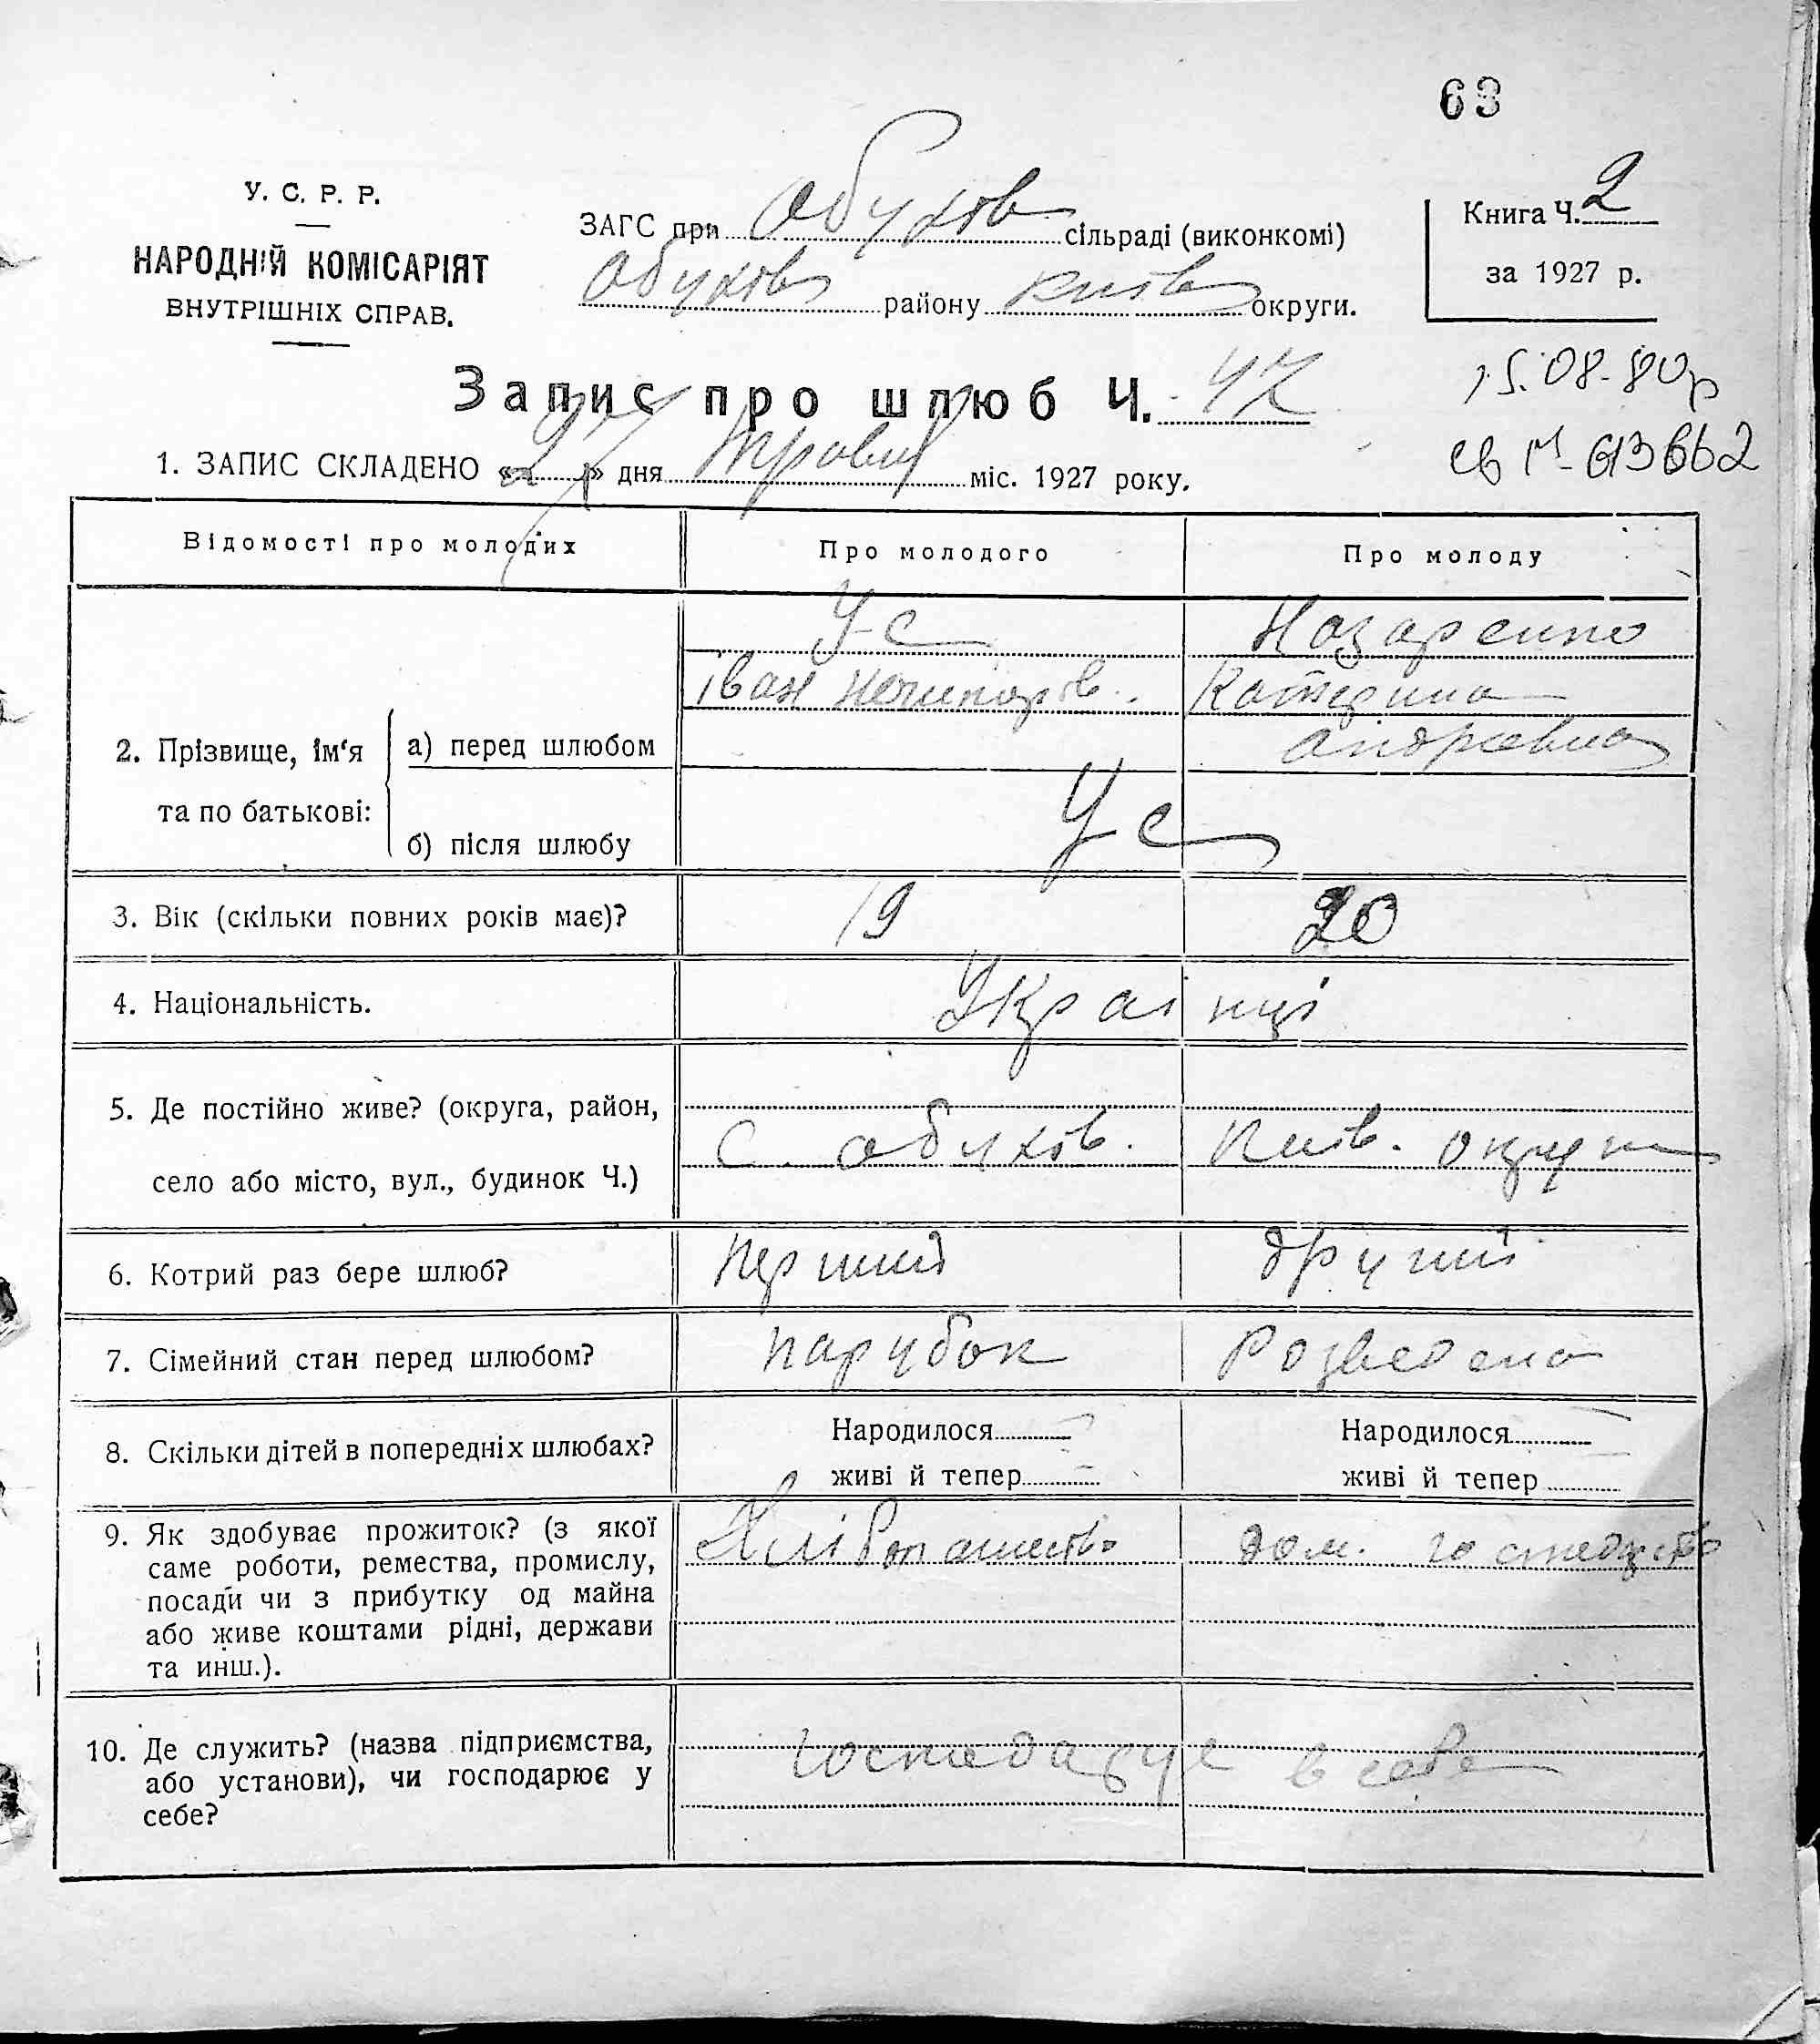 63
У. С. Р. Р.
НАРОДНІЙ КОМІСАРІЯТ
ВНУТРІШНІХ СПРАВ.
ЗАГС при Обухов сільраді (виконкомі)
Обухов району Київ округи.
Книга Ч. 2
за 1927 р.
Запис про шлюб Ч. 47
15.08.80р
1. ЗАПИС СКЛАДЕНО «27» дня Травня міс. 1927 року.
Відомості про молодих Про молодого Про молоду
Ус Назаренко
Іван Ничипорів. Катерина
Андріевна
2. Прізвище, ім‘я та по батькові:
а) перед шлюбом
б) після шлюбу Ус
3. Вік (скільки повних років має)? 19 20
4. Національність. Украінці
5. Де постійно живе? (округа, район,
село або місто, вул., будинок Ч.) С. Обухов. Київ. округи
6. Котрий раз бере шлюб? Перший другий
7. Сімейний стан перед шлюбом? парубок Розведена
8. Скільки дітей в попередніх шлюбах? Народилося — Народилося —
живі й тепер — живі й тепер
9. Як здобуває прожиток? (з якої
саме роботи, ремества, промислу,
посади чи з прибутку од майна
або живе коштами рідні, держави
та инш.). Хліботашество дом. господарство
10. Де служить? (назва підприємства,
або установи), чи господарює у
себе? Господарує в себе